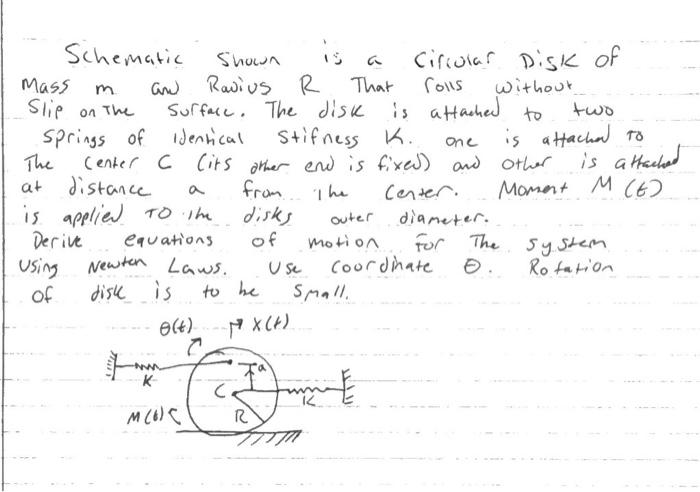 Schematic Shown is a Circular Disk of
Mass m and Radius R That rolls without
Slip on The Surface. The disk is attached to two
springs of Identical Stifness K. one is attached TO
The Center C (its other end is fixed) and other is attached
at distance a from The Center. Moment M(t)
is applied TO the disks outer diameter.
Derive equations of motion For The System
Using Newton Laws. Use Coordinate θ. Rotation
of disk is to be Small.
θ(t) X(t)
K a
C K
M(t) R